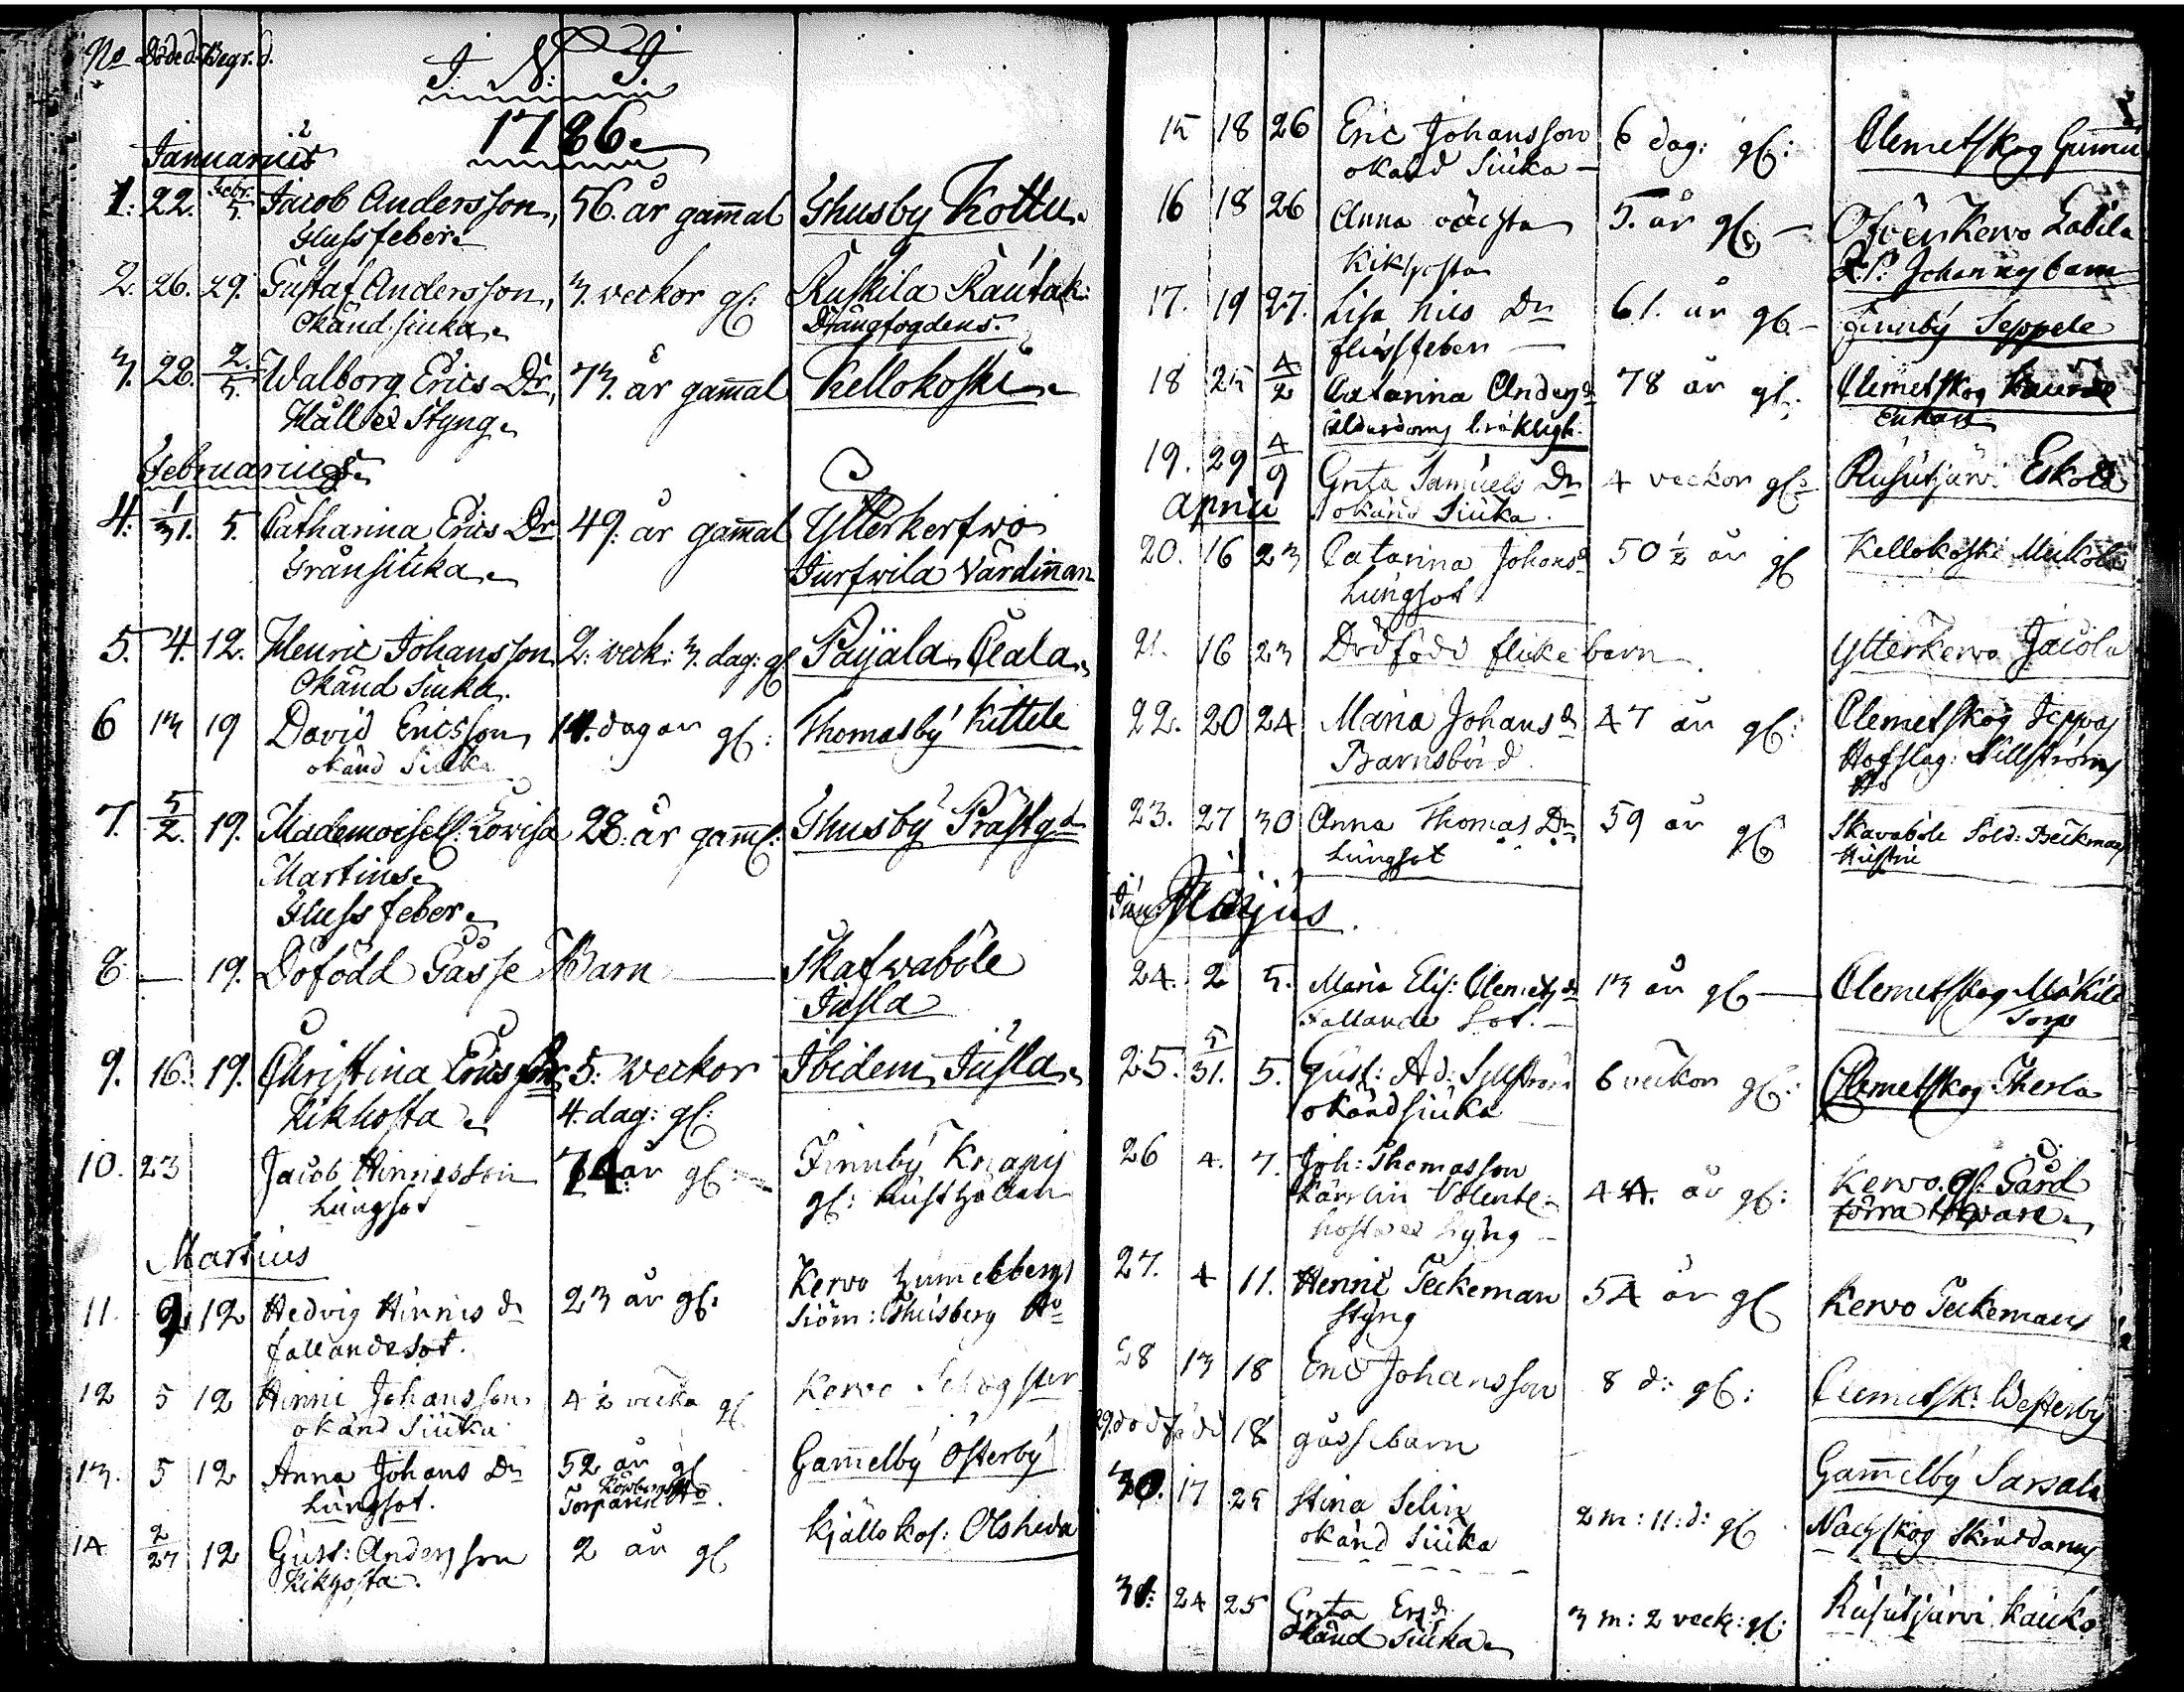 No Döde d. Begr. d.
I. N. I.
1786.
Januarius
1. 22. Febr. 5. Jacob Andersson, 56. år gamal Thusby Kottu.
Flussfeber.
2. 26. 29. Gustaf Andersson, 3. veckor gl: Ruskila Rautak:
Okänd siuka. Drängfogdens.
3. 28. 2./5. Walborg Erics Dr, 73. år gamal Kellokoski.
Håll ock Styng.
Februarius.
4. 1/31. 5. Catharina Erics Dr 49. år gamal Ytterkerfwo
Fransiuka. Jurfwila Värdinan
5. 4. 12. Henric Johansson 2. veck: 3. dag: gl Paijala, Ceala.
Okänd Siuka.
6 13 19 David Ericsson 14. dagar gl: Thomasby Kittele
okänd Siuka
7. 5/2. 19. Mademoisell: Lovisa 28. år gaml: Thusby Prästgd
Martins.
Flussfeber.
8. — 19. Dofödd Gåsse Barn — Skafwaböle
Jusla
9. 16. 19. Christina Erics Dr 5. Weckor Ibidem Jusla.
Kikhosta. 4. dag: gl:
10. 23 Jacob Hinricsson 74 år gl: Finnby Knapis
Lungsot gl: Rusthållen
Martius
11. 9. 12 Hedvig Hinrics dr 23 år gl: Kervo Hummelbergs
fallandesot. Siöm: Thusberg Ho
12 5 12 Hinric Johansson 4 ½ vecka gl Kervo Skogster
okänd Siuka
13. 5 12 Anna Johans Dr 52 år gl Gamelby Österby
Lungsot. Torparens Ho
14 2/27 12 Gust: Andersson 2 år gl Kjällokos: Olsheda
Kikhosta.
15 18 26 Eric Johansson 6 dag: gl: Clemetskog Gumu
okänd Siuka —
16 18 26 Anna 5. år gl — Ofverkervo Labila
Kikhosta Johannis barn
17. 19 27. Lisa Nils Dr 61. år gl — Finnby Seppele
flussfeber —
18 25 4/2 Catarina Anders dr 78 år gl: Clemetskog
Ålderdoms bräkligh. Enkan
19. 29 4/9 Greta Samuels Dr 4 veckor gl: Rusutjärvi Eskola
April okänd Siuka.
20. 16 23 Catarina Johans dr 50 ½ år gl Kellokoski Mickola
Lungsot
21. 16 23 Dödfödd flicke barn. Ytterkervo Jacola
22. 20 24 Maria Johans dr 47 år gl: Clemetskog Seppas
Barnsbörd. Hofslag: Sillströms
Ho
23. 27 30 Anna Thomas Dr 59 år gl Skavaböle Sold: Beckmans
Lungsot Hustru
Majus.
24. 2 5. Maria Elis: Clemets dr 13 år gl — Clemetskog Mäkilä
Fallande Sot. — Torp
25. 5/31. 5. Gust: Ad: Syllström 6 veckor gl: Clemetskog Therla
okänd siuka
26 4. 7. Joh: Thomasson
44. år gl: Kervo. gl: Gård
27. 4 11. Henric Teckeman 54 år gl Kervo Teckemans
Styng
28 13 18 Eric Johansson 8 d: gl: Clemetsk: Westerby
29. dödfödd 18 gossebarn Gamelby Sarsala
30. 17 25 Stina Selin 2 m: 11: d: gl Nackskog
okänd Siuka
31: 24 25 Greta Ers dr 3 m: 2 veck: gl: Rusutjärvi Kauko
okänd Siuka.